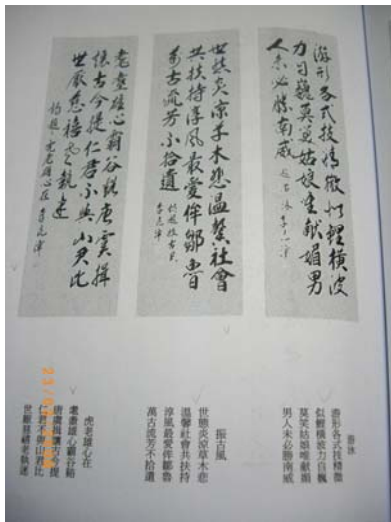 游形各式技精微似鯉橫波
力自飄莫笑姑娘唯献媚男
人未必勝南威
世態炎涼草木悲溫馨社會
共扶持淳風最愛侔鄒魯
萬古流芳不拾遺
耄耋雄心霸谷谿唐虞揖
讓古今提仁君不與山君比
世厭慈禧老執迷
游泳
游形各式技精微
似鯉橫波力自飄
莫笑姑娘唯獻媚
男人未必勝南威
振古風
世態炎涼草木悲
溫馨社會共扶持
淳風最愛侔鄒魯
萬古流芳不拾遺
虎老雄心在
耄耋雄心霸谷谿
唐虞揖讓古今提
仁君不與山君比
世厭慈禧老執迷